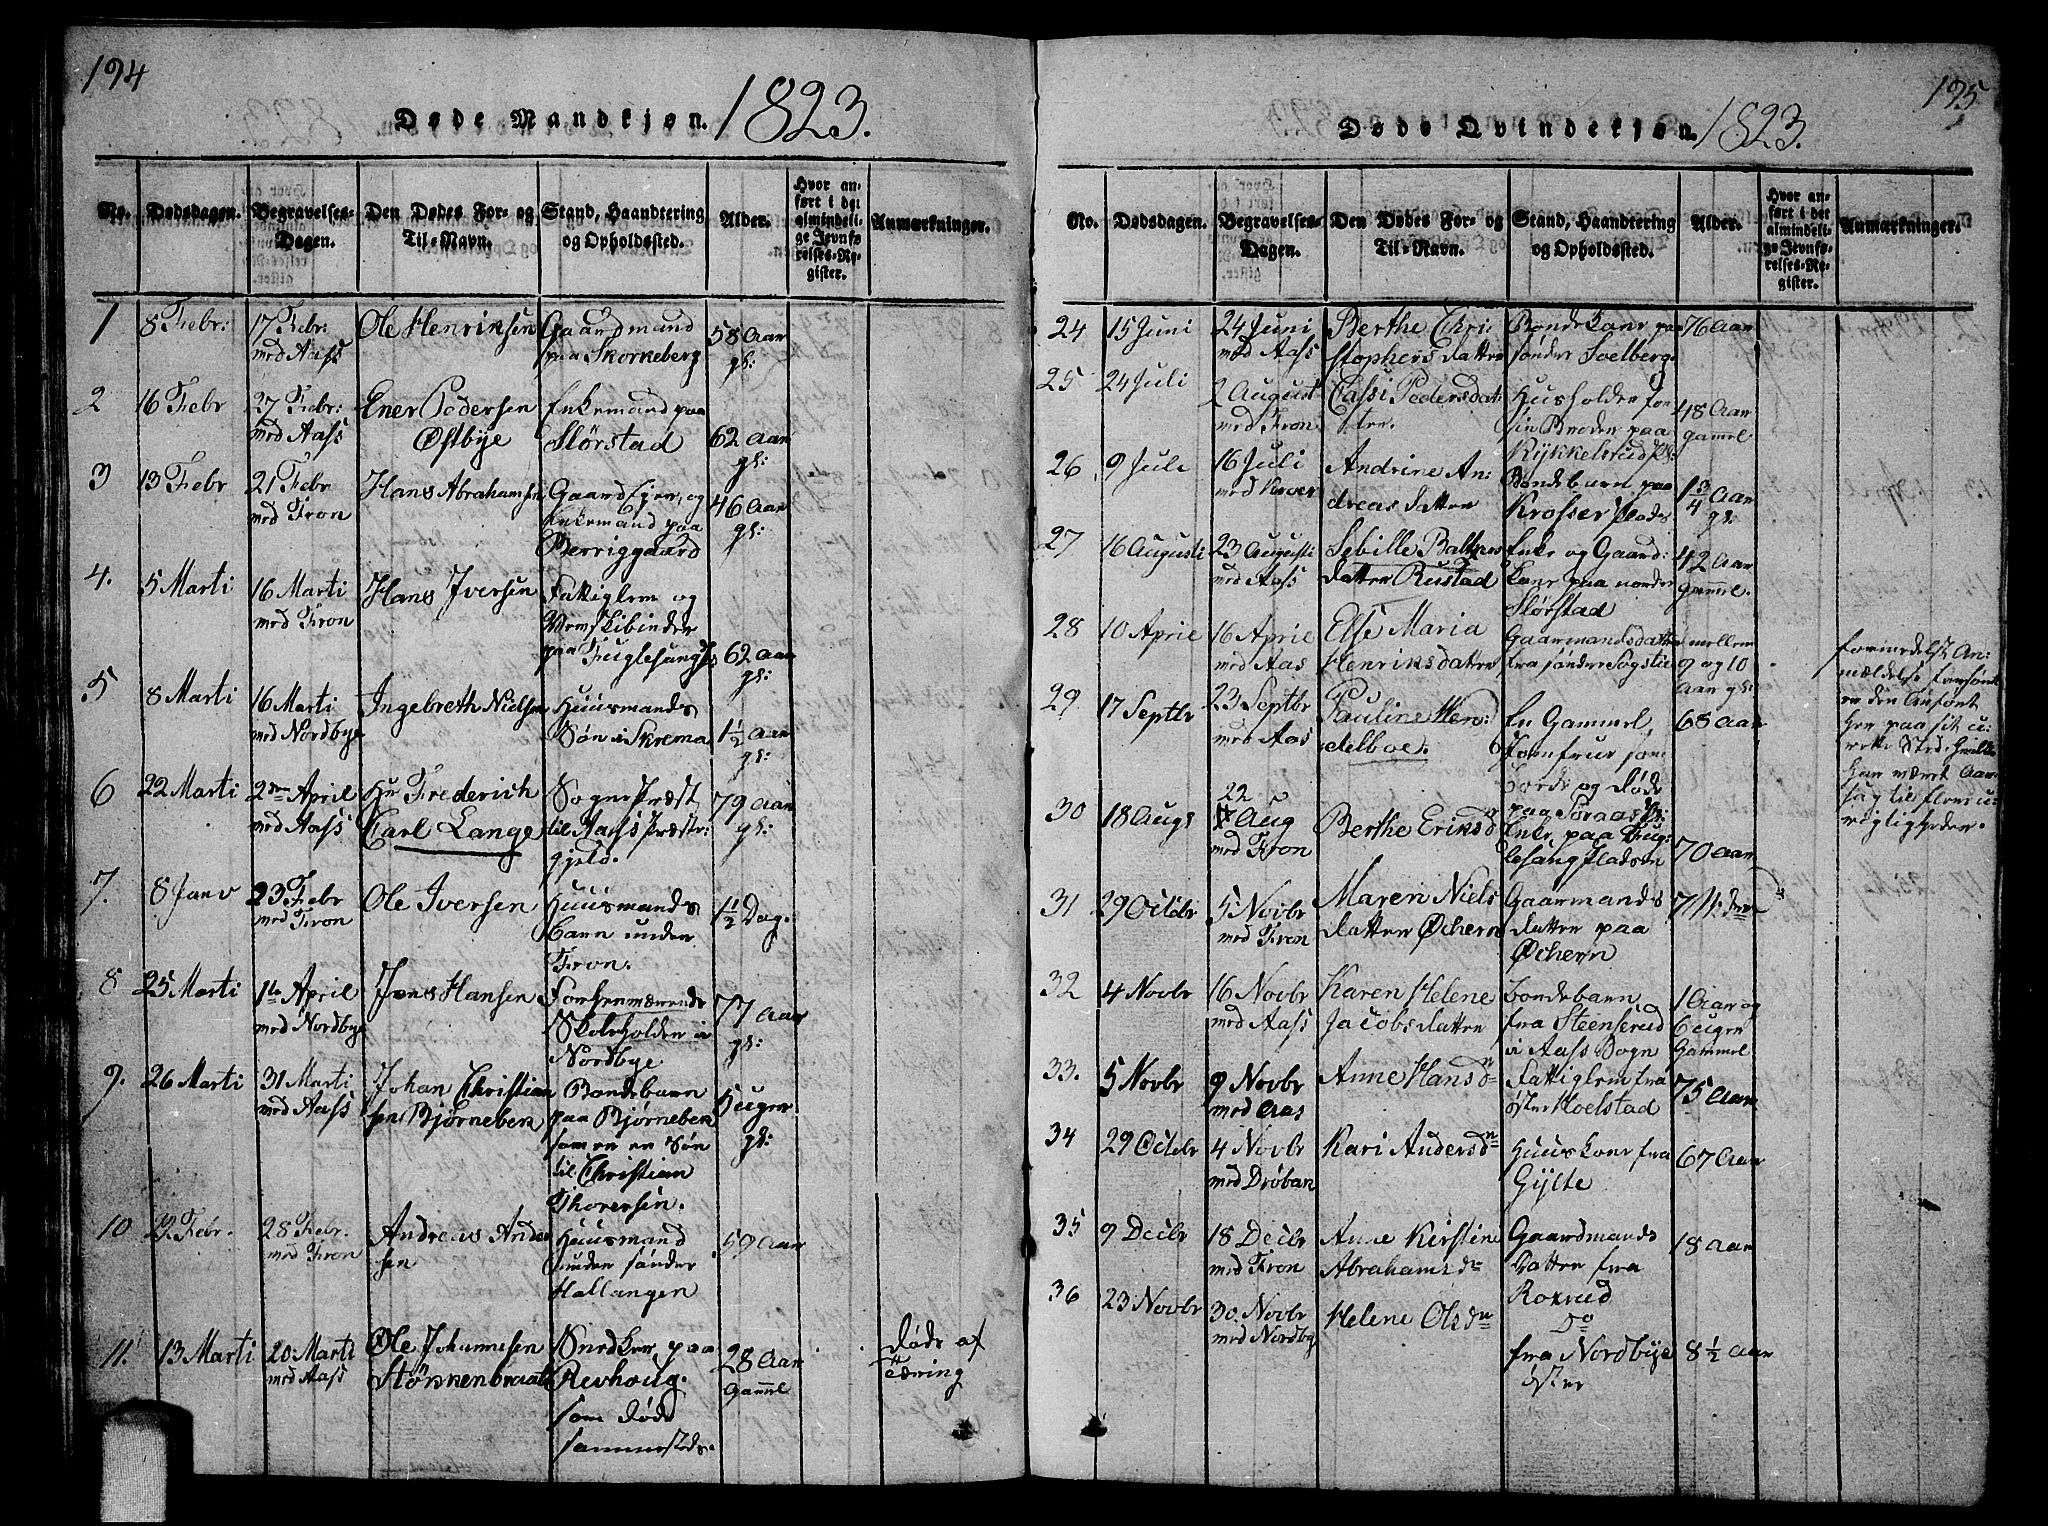 194
Døde Mandkjøn. 1823.
No.
Dødsdagen.
Begravelses-
Dagen.
Den Dødes For- og
Til-Navn.
Stand, Haandtering
og Opholdssted.
Alder.
Hvor an-
ført i det
almindeli-
ge Jevnfø-
relses-Re-
gister.
Anmærkninger.
1
8 Febr:
17 Febr:
med Aass
Ole Henriksen
Gaardmand
paa Skorkeberg
58 Aar
gl:
2
16 Febr
27 Febr:
med Aass
Ener Pedersen
Østbye
Enkemand paa
Slørstad
62 Aar
gl:
3
13 Febr
21 Febr
med Fron
Hans Abrahamsen
Gaardejer og
Enkemand paa
Berriggaard
46 Aar
gl:
4.
5 Marti
16 Marti
med Fron
Hans Iversen
Fattiglem og
paa Fuglesang
62 Aar
gl:
5
8 Marti
16 Marti
med Nordbye
Ingebreth Nielsen
Huusmands
Søn i Skrema
1½ Aar
gl:
6
22 Marti
2den April
med Aass
Hr Frederich
Carl Lange
SognePræst
til Aass Præste-
gjeld.
79 Aar
gl:
7.
8 Janv
23 Febr
med Fron
Ole Iversen
Huusmands
barn under
Fron.
1½ Dag.
8
25 Marti
1te April
med Nordbye
Jens Hansen
Forhenværende
Skoleholder i
Nordbye
77 Aar
gl:
9.
26 Marti
31 Marti
med Aass
Johan Christian
sen Bjørnebek
Bondebarn
paa Bjørnebek
som er en Søn
til Christian
Thorersen.
5 uger
gl:
10
28 Febr.
med Fron
Andreas Ander
sen
Huusmand
under sønder
Hallangen
59 Aar
11.
13 Marti
20 Marti
med Aass
Ole Johannesen
Størkenbraaten
Snedker paa
Revhoug.
som døde
sammesteds.
28 Aar
Gamel
døde af
Tæring
195
Døde Qvindekjøn 1823.
No.
Dødsdagen.
Begravelses-
Dagen.
Den Dødes For- og
Til-Navn.
Stand, Haandtering
og Opholdssted.
Alder.
Hvor an-
ført i det
almindeli-
ge Jevnfø-
relses-Re-
gister.
Anmærkninger.
24
15 Juni
24 Juni
med Aass
Berthe Chri
stophers datter
Bondekone paa
sønder Solberg.
76 Aar
25
24 Juli
2 August
med Fron
Cassi Pedersdat
ter.
Huusholder for
sin Broder paa
Kykkelsrud
48 Aar
gamel
26
9 Juli
16 Juli
med Kroer
Andrine An:
dreas datter
Bondebarn paa
Krosser plads
1¾ Aar
gl:
27
16 Augusti
23 Augusti
med Aass
Sebille
datter Rustad
Enke og Gaard:
kone paa nordre
Slørstad
42 Aar
gammel.
28
10 April
16 April
med Aas
Else Maria
Henriksdatter
Gaarmandsdatter
fra sønder Sogstie
mellem
9 og 10
Aar gl:
formedelst An:
mældelse forsømt
er den Anført
her paa sit u:
rette Sted, hvilke
har været Aar:
sag til fleer u:
rigtigheder.
29
17 Septbr
23 Septbr
med Aas
Pauline Her:
delboe.
En Gammel
Jomfrue som
boede og døde
paa Foraas
68 Aar
30
18 Augs
22
Aug
med Fron
Berthe Eriksd
Enke paa Fug:
lesang Pladsen
70 Aar
31
29 Octbr
5 Novbr
med Fron
Maren Niels
datter Øchern
Gaarmands
datter paa
Øchern
7 M:der
32
4 Novbr
16 Novbr
med Aass
Karen Helene
Jacobsdatter
bondebarn
fra Steenserud
i Aass Sogn
1 Aar og
6 uger
Gammel
33.
5 Novbr
9 Novbr
med Aas
Anne Hansdn
Fattiglem fra
øster Hoelstad
75 Aar
34
29 Octbr
4 Novbr
med Drøbak
Kari Andersdn
Huuskone fra
Gylte
67 Aar
35
9 Decbr
18 Decbr
med Fron
Anne Kirstine
Abrahamsdn
Gaardmands
datter fra
Roxrud
18 Aar
36
23 Novbr
30 Novbr
med Nordby
Helene Olsdn
Do
fra Nordbye
øster
8½ Aar